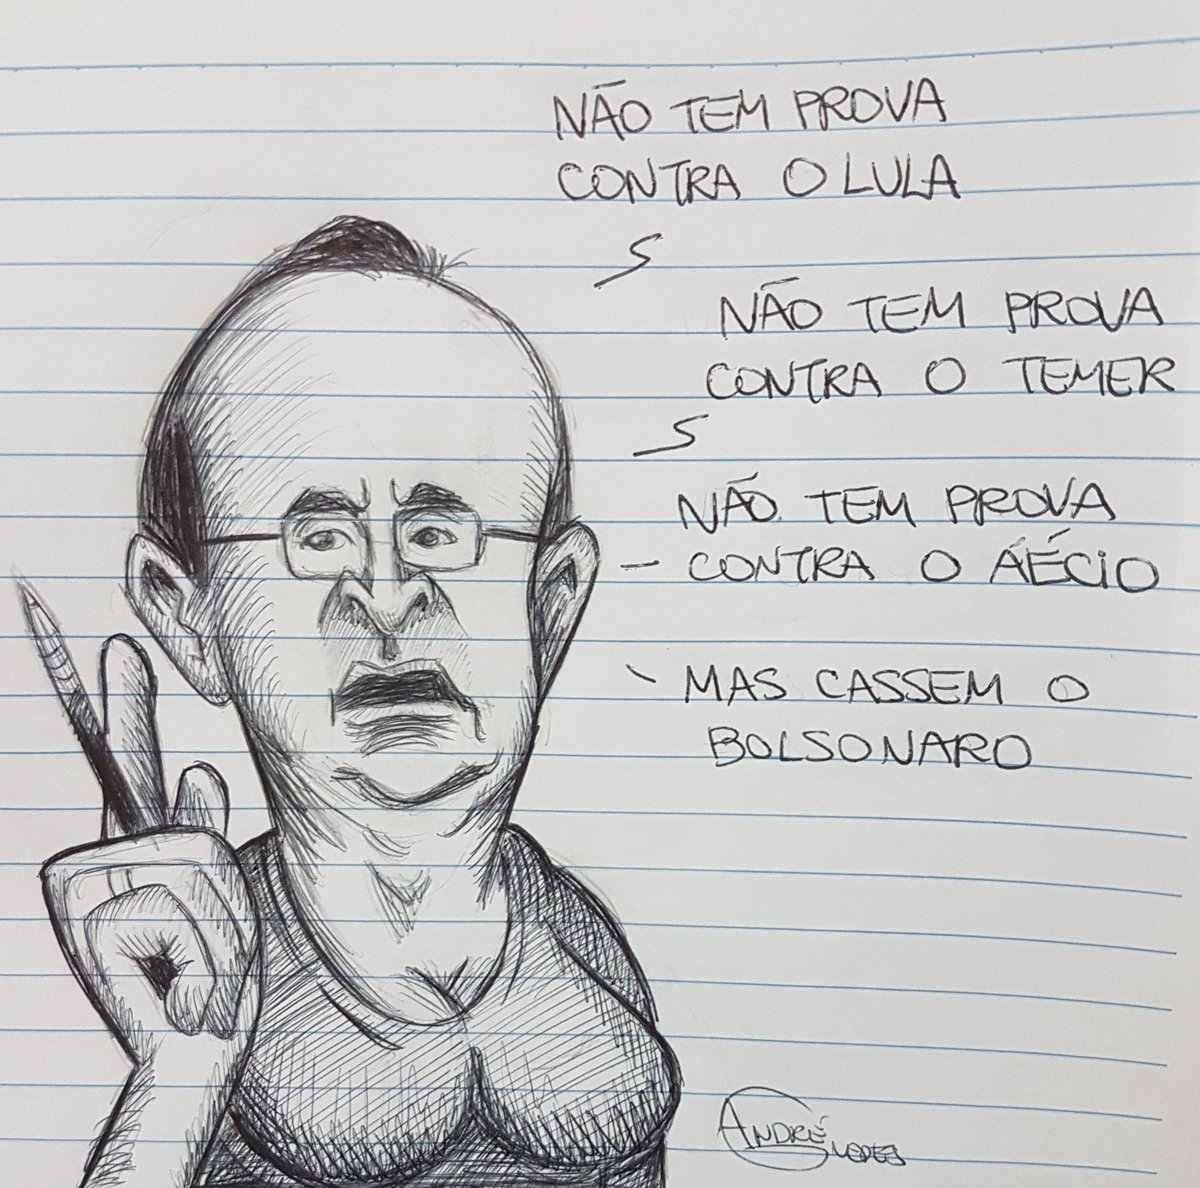 NÃO TEM PROVA
CONTRA O LULA
NÃO TEM PROVA
CONTRA O TEMER
NÃO TEM PROVA
CONTRA O ÁÉCIO
MAS CASSEM O
BOLSONARO
ANDRÉ
LOPES